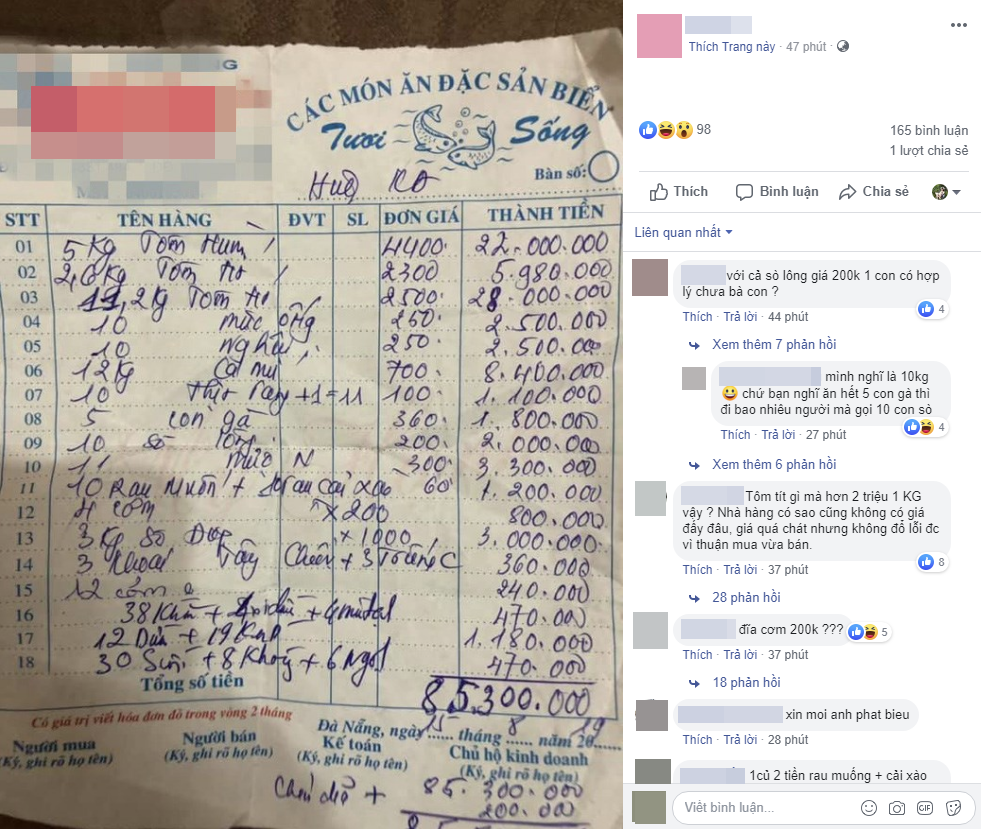 CÁC MÓN ĂN ĐẶC SẢN BIỂN
Tươi Sống
Bàn số:
STT TÊN HÀNG ĐVT SL ĐƠN GIÁ THÀNH TIỀN
01 5 Kg Tôm Hum 4400 22.000.000
02 2,6 Kg Tôm 2300 5.980.000
03 11,2 Kg Tôm 2500 28.000.000
04 10 mực ống 250 2.500.000
05 10 nghêu 250 2.500.000
06 12 Kg Cá mú 700 8.400.000
07 10 +1=11 100 1.100.000
08 5 con gà 360 1.800.000
09 10 sò lông 200 2.000.000
10 11 mực N 300 3.300.000
11 10 Rau Muốn + Rau Cải Xào 60 1.200.000
12 4 cơm x 200 800.000
13 3 Kg Sò x 1000 3.000.000
14 3 Khoai Tây Chiên + 3 Trứng C 360.000
15 12 cơm 240.000
16 38 Khăn + 4 470.000
17 12 Dừa + 19 1.180.000
18 30 + 8 + 6 Ngọt 470.000
Tổng số tiền 85.300.000
Có giá trị viết hóa đơn đỏ trong vòng 2 tháng
Đà Nẵng, ngày 15 tháng 8 năm 2019
Người mua
(Ký, ghi rõ họ tên)
Người bán
(Ký, ghi rõ họ tên)
Kế toán
(Ký, ghi rõ họ tên)
Chủ hộ kinh doanh
(Ký, ghi rõ họ tên)
+ 85.300.000
200.000
Thích Trang này · 47 phút ·
98
165 bình luận
1 lượt chia sẻ
Thích Bình luận Chia sẻ
Liên quan nhất
với cả sò lông giá 200k 1 con có hợp
lý chưa bà con ?
4
Thích · Trả lời · 44 phút
Xem thêm 7 phản hồi
mình nghĩ là 10kg
😀 chứ bạn nghĩ ăn hết 5 con gà thì
đi bao nhiêu người mà gọi 10 con sò
4
Thích · Trả lời · 27 phút
Xem thêm 6 phản hồi
Tôm tít gì mà hơn 2 triệu 1 KG
vậy ? Nhà hàng có sao cũng không có giá
đấy đâu, giá quá chát nhưng không đổ lỗi đc
vì thuận mua vừa bán.
8
Thích · Trả lời · 37 phút
28 phản hồi
đĩa cơm 200k ???
5
Thích · Trả lời · 37 phút
18 phản hồi
xin moi anh phat bieu
Thích · Trả lời · 28 phút
1củ 2 tiền rau muống + cải xào
Viết bình luận...
GIF